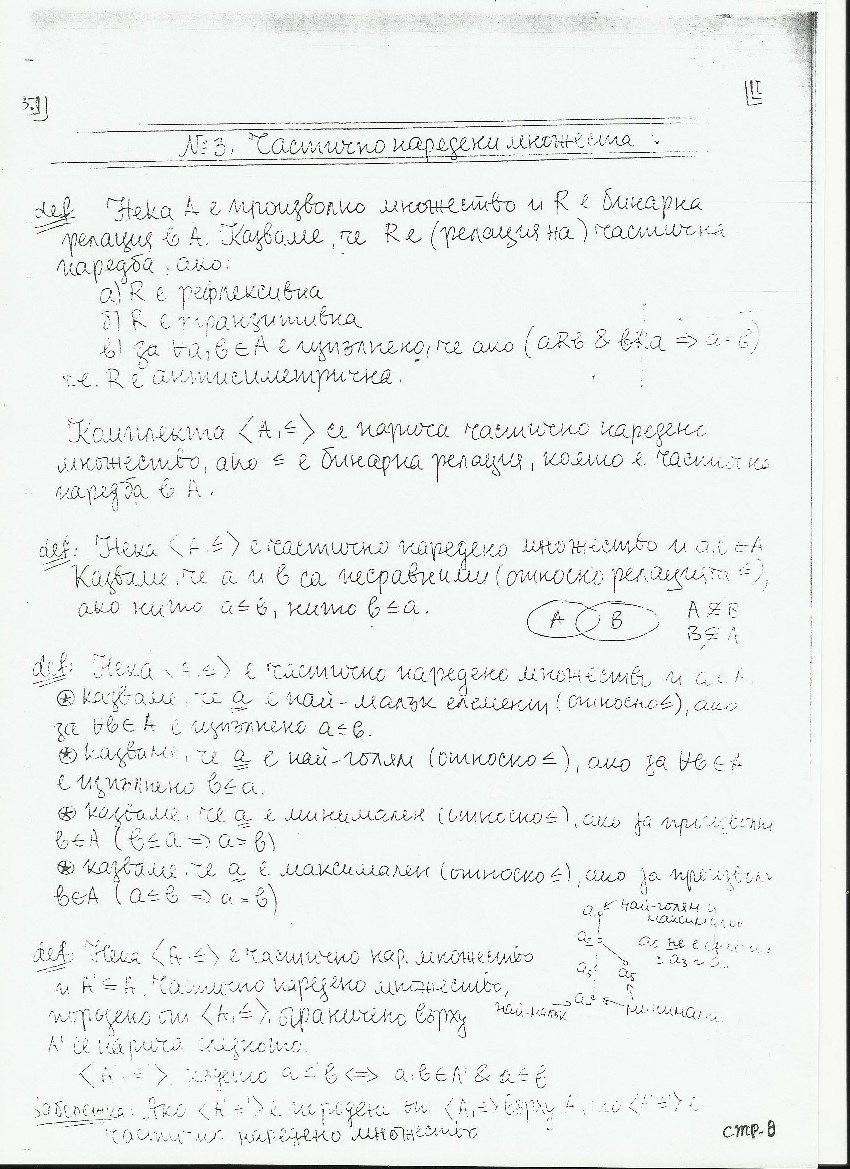 3.
II
№3. Частично наредени множества
def. Нека A е произволно множество и R е бинарна
релация в A. Казваме, че R е (релация на) частична
наредба, ако:
а) R е рефлексивна
б) R е транзитивна
в) за ∀a,b∈A е изпълнено, че ако (aRb & bRa ⇒ a=b)
т.е. R е антисиметрична.
Комплекта ⟨A,≤⟩ се нарича частично наредено
множество, ако ≤ е бинарна релация, която е частична
наредба в A.
def: Нека ⟨A,≤⟩ е частично наредено множество и a,b∈A
Казваме, че a и b са несравними (относно релацията ≤),
ако нито a≤b, нито b≤a.
A B
A⊈B
B⊈A
def: Нека ⟨A,≤⟩ е частично наредено множество и a∈A.
⊛ казваме, че a е най-малък елемент (относно ≤), ако
за ∀b∈A е изпълнено a≤b.
⊛ казваме, че a е най-голям (относно ≤), ако за ∀b∈A
е изпълнено b≤a.
⊛ казваме, че a е минимален (относно ≤), ако за произволно
b∈A (b≤a ⇒ a=b)
⊛ казваме, че a е максимален (относно ≤), ако за произвол
b∈A (a≤b ⇒ a=b)
най-голям и
максимален
a₅ не е
a₅
най-малък
минимал
def: Нека ⟨A,≤⟩ е частично нар. множество
и A'⊆A. Частично наредено множество,
породено от ⟨A,≤⟩, ограничено върху
A' се нарича
⟨A',≤'⟩, където a≤'b ⟺ a,b∈A' & a≤b
Забележка: Ако ⟨A',≤'⟩ е породена от ⟨A,≤⟩ върху A', то ⟨A',≤'⟩ е
частично наредено множество
стр-8